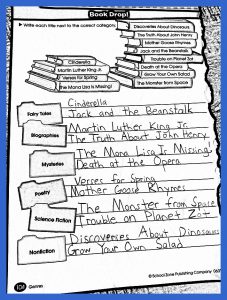 Book Drop!
Write each title next to the correct category.
Cinderella
Martin Luther King Jr.
Verses for Spring
The Mona Lisa Is Missing!
Discoveries About Dinosaurs
The Truth About John Henry
Mother Goose Rhymes
Jack and the Beanstalk
Trouble on Planet Zot
Death at the Opera
Grow Your Own Salad
The Monster from Space
Fairy Tales
Cinderella
Jack and the Beanstalk
Biographies
Martin Luther King Jr.
The Truth About John Henry
Mysteries
The Mona Lisa Is Missing!
Death at the Opera
Poetry
Verses for Spring
Mother Goose Rhymes
Science Fiction
The Monster from Space
Trouble on Planet Zot
Nonfiction
Discoveries About Dinosaurs
Grow Your Own Salad
108
Genres
© School Zone Publishing Company